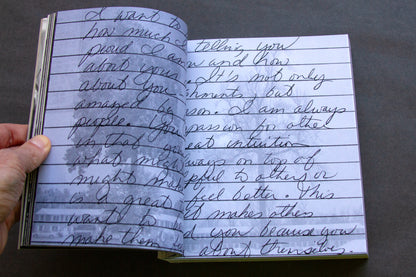 I want to
how much I
proud I am
about your
about you
amazed
people. Yo
in that yo
what migh
might mak
is a great
want to
make them
telling you
and how
. It's not only
shments, but
son. I am always
passion for other
eat intuition
ways on top of
pful to others or
feel better. This
t makes others
d you because you
about themselves.